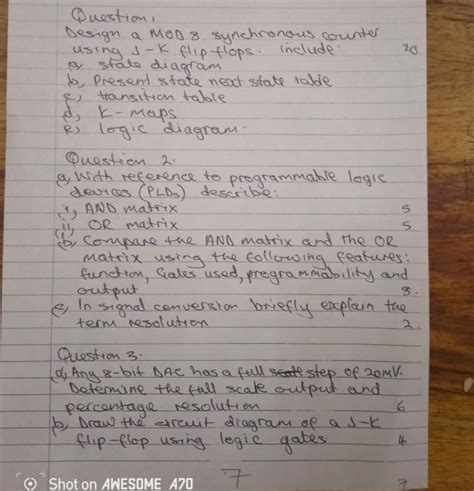 Question 1
Design a MOD 8 synchronous counter
using J-K flip-flops. Include: 20
a, state diagram
b, Present state next state table
c, transition table
d, K-maps
e, logic diagram.
Question 2.
a, With reference to programmable logic
devices (PLDs) describe:
i, AND matrix 5
ii, OR matrix 5
b, Compare the AND matrix and the OR
matrix using the following features:
function, Gates used, programmability and
output 8.
c, In signal conversion briefly explain the
term resolution 2.
Question 3.
a, Any 8-bit DAC has a full step of 20mV.
Determine the full scale output and
percentage resolution 6
b, Draw the circuit diagram of a J-K
flip-flop using logic gates 4
7
Shot on AWESOME A70